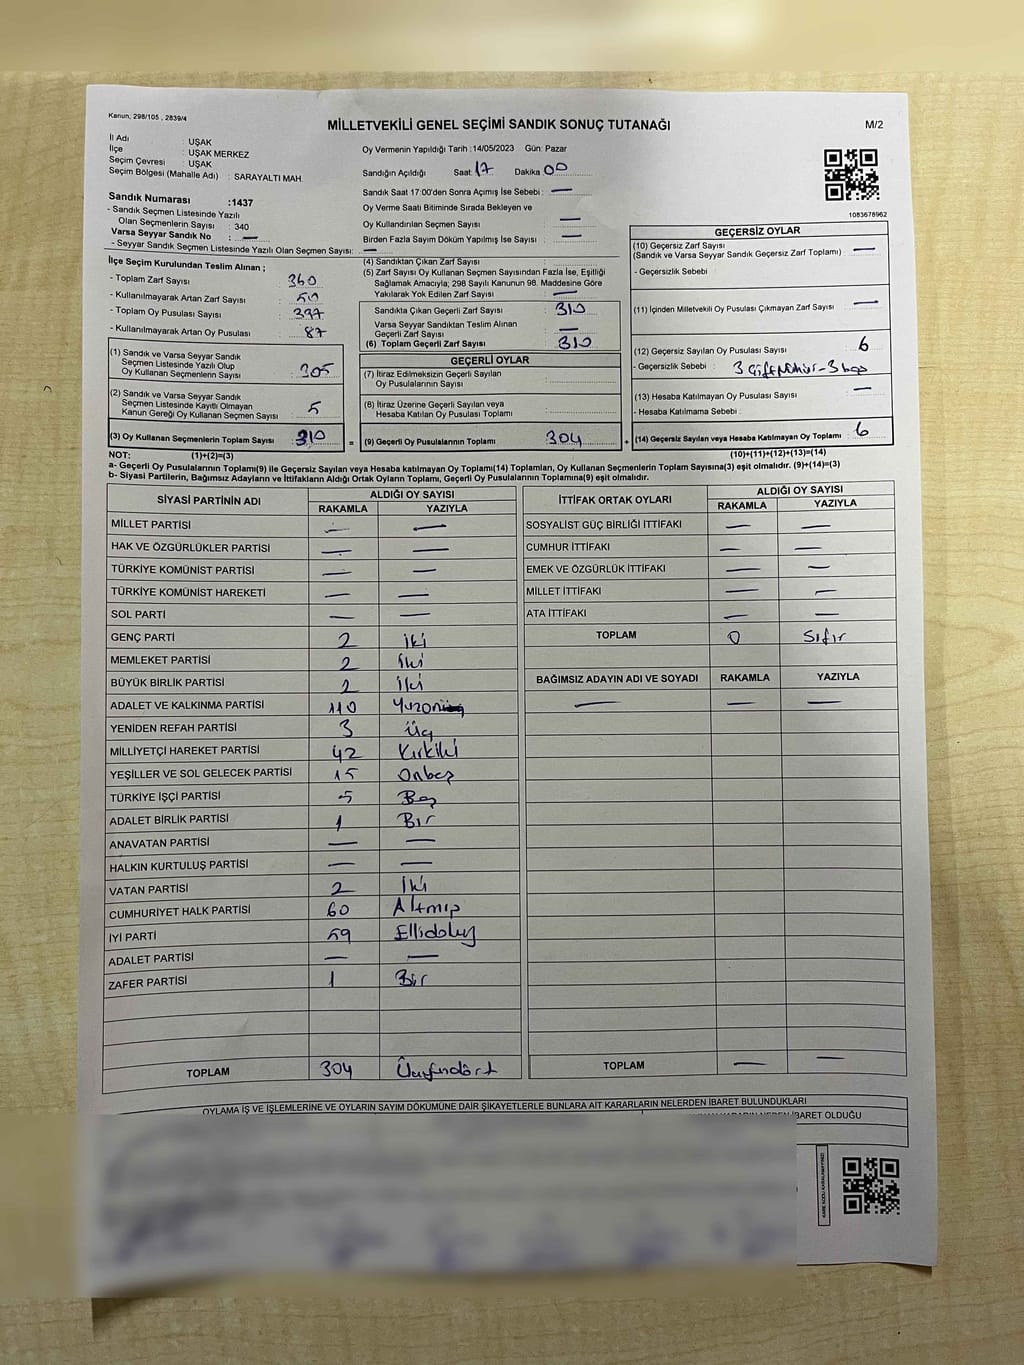 Kanun; 298/105 , 2839/4
MİLLETVEKİLİ GENEL SEÇİMİ SANDIK SONUÇ TUTANAĞI
M/2
İl Adı : UŞAK
İlçe : UŞAK MERKEZ
Seçim Çevresi : UŞAK
Seçim Bölgesi (Mahalle Adı) : SARAYALTI MAH.
Sandık Numarası :1437
- Sandık Seçmen Listesinde Yazılı
Olan Seçmenlerin Sayısı : 340
Varsa Seyyar Sandık No : —
- Seyyar Sandık Seçmen Listesinde Yazılı Olan Seçmen Sayısı: —
Oy Vermenin Yapıldığı Tarih :14/05/2023 Gün: Pazar
Sandığın Açıldığı Saat: 17 Dakika 00
Sandık Saat 17:00'den Sonra Açımış İse Sebebi : —
Oy Verme Saati Bitiminde Sırada Bekleyen ve
Oy Kullandırılan Seçmen Sayısı : —
Birden Fazla Sayım Döküm Yapılmış İse Sayısı : —
1083678962
İlçe Seçim Kurulundan Teslim Alınan ;
- Toplam Zarf Sayısı : 360
- Kullanılmayarak Artan Zarf Sayısı : 50
- Toplam Oy Pusulası Sayısı : 397
- Kullanılmayarak Artan Oy Pusulası : 87
(1) Sandık ve Varsa Seyyar Sandık
Seçmen Listesinde Yazılı Olup
Oy Kullanan Seçmenlerin Sayısı : 305
(2) Sandık ve Varsa Seyyar Sandık
Seçmen Listesinde Kayıtlı Olmayan
Kanun Gereği Oy Kullanan Seçmen Sayısı : 5
(3) Oy Kullanan Seçmenlerin Toplam Sayısı : 310
(4) Sandıktan Çıkan Zarf Sayısı :
(5) Zarf Sayısı Oy Kullanan Seçmen Sayısından Fazla İse, Eşitliği
Sağlamak Amacıyla; 298 Sayılı Kanunun 98. Maddesine Göre
Yakılarak Yok Edilen Zarf Sayısı : —
Sandıkta Çıkan Geçerli Zarf Sayısı : 310
Varsa Seyyar Sandıktan Teslim Alınan
Geçerli Zarf Sayısı : —
(6) Toplam Geçerli Zarf Sayısı : 310
GEÇERLİ OYLAR
(7) İtiraz Edilmeksizin Geçerli Sayılan
Oy Pusulalarının Sayısı :
(8) İtiraz Üzerine Geçerli Sayılan veya
Hesaba Katılan Oy Pusulası Toplamı :
= (9) Geçerli Oy Pusulalarının Toplamı 304
GEÇERSİZ OYLAR
(10) Geçersiz Zarf Sayısı
(Sandık ve Varsa Seyyar Sandık Geçersiz Zarf Toplamı) : —
- Geçersizlik Sebebi :
(11) İçinden Milletvekili Oy Pusulası Çıkmayan Zarf Sayısı : —
(12) Geçersiz Sayılan Oy Pusulası Sayısı : 6
- Geçersizlik Sebebi : 3 Çift mühür-3 boş
(13) Hesaba Katılmayan Oy Pusulası Sayısı : —
- Hesaba Katılmama Sebebi :
+ (14) Geçersiz Sayılan veya Hesaba Katılmayan Oy Toplamı : 6
NOT: (1)+(2)=(3) (10)+(11)+(12)+(13)=(14)
a- Geçerli Oy Pusulalarının Toplamı(9) ile Geçersiz Sayılan veya Hesaba katılmayan Oy Toplamı(14) Toplamları, Oy Kullanan Seçmenlerin Toplam Sayısına(3) eşit olmalıdır. (9)+(14)=(3)
b- Siyasi Partilerin, Bağımsız Adayların ve İttifakların Aldığı Ortak Oyların Toplamı, Geçerli Oy Pusulalarının Toplamına(9) eşit olmalıdır.
SİYASİ PARTİNİN ADI ALDIĞI OY SAYISI
RAKAMLA YAZIYLA
MİLLET PARTİSİ — —
HAK VE ÖZGÜRLÜKLER PARTİSİ — —
TÜRKİYE KOMÜNİST PARTİSİ — —
TÜRKİYE KOMÜNİST HAREKETİ — —
SOL PARTİ — —
GENÇ PARTİ 2 İki
MEMLEKET PARTİSİ 2 İki
BÜYÜK BİRLİK PARTİSİ 2 İki
ADALET VE KALKINMA PARTİSİ 110 Yüzon
YENİDEN REFAH PARTİSİ 3 Üç
MİLLİYETÇİ HAREKET PARTİSİ 42 Kırkiki
YEŞİLLER VE SOL GELECEK PARTİSİ 15 Onbeş
TÜRKİYE İŞÇİ PARTİSİ 5 Beş
ADALET BİRLİK PARTİSİ 1 Bir
ANAVATAN PARTİSİ — —
HALKIN KURTULUŞ PARTİSİ — —
VATAN PARTİSİ 2 İki
CUMHURİYET HALK PARTİSİ 60 Altmış
İYİ PARTİ 59 Ellidokuz
ADALET PARTİSİ — —
ZAFER PARTİSİ 1 Bir
TOPLAM 304 Üçyüzdört
İTTİFAK ORTAK OYLARI ALDIĞI OY SAYISI
RAKAMLA YAZIYLA
SOSYALİST GÜÇ BİRLİĞİ İTTİFAKI — —
CUMHUR İTTİFAKI — —
EMEK VE ÖZGÜRLÜK İTTİFAKI — —
MİLLET İTTİFAKI — —
ATA İTTİFAKI — —
TOPLAM 0 Sıfır
BAĞIMSIZ ADAYIN ADI VE SOYADI RAKAMLA YAZIYLA
— — —
TOPLAM — —
OYLAMA İŞ VE İŞLEMLERİNE VE OYLARIN SAYIM DÖKÜMÜNE DAİR ŞİKAYETLERLE BUNLARA AİT KARARLARIN NELERDEN İBARET BULUNDUKLARI
KARARIN NEDEN İBARET OLDUĞU